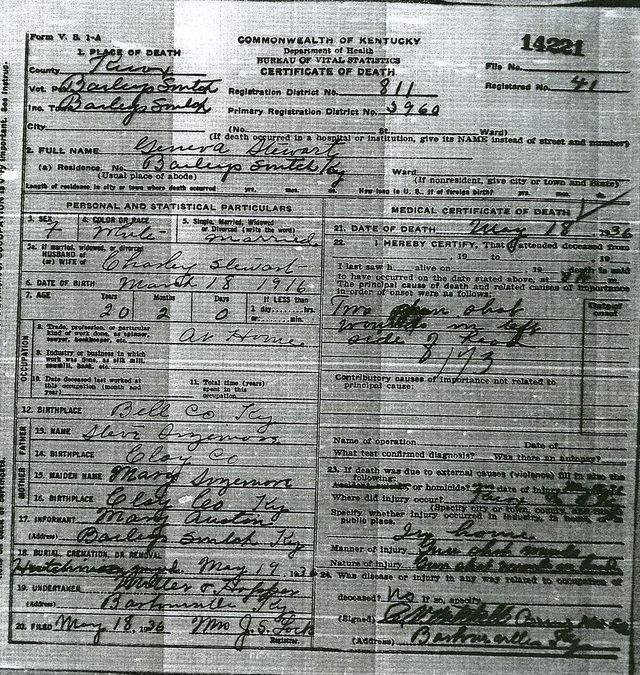 Form V. S. 1-A
COMMONWEALTH OF KENTUCKY
Department of Health
BUREAU OF VITAL STATISTICS
CERTIFICATE OF DEATH
14221
1. PLACE OF DEATH
County Knox
File No.
Vot. Baileys Switch
Registration District No. 811
Registered No. 41
Inc. Town Baileys Switch
Primary Registration District No. 5960
City (No. St. Ward)
(If death occurred in a hospital or institution, give its NAME instead of street and number)
2. FULL NAME Geneva Stewart
(a) Residence. No. Baileys Switch Ky Ward
(Usual place of abode) (If nonresident, give city or town and State)
Length of residence in city or town where death occurred yrs. mos. ds. How long in U. S. if of foreign birth? yrs. mos. ds.
PERSONAL AND STATISTICAL PARTICULARS
3. SEX F
4. COLOR OR RACE White
5. Single, Married, Widowed or Divorced (write the word) married
5a. If married, widowed, or divorced
HUSBAND of
(or) WIFE of Charley Stewart
6. DATE OF BIRTH March 18 1916
7. AGE Years Months Days If LESS than
20 2 0 1 day, hrs.
or min.
OCCUPATION
8. Trade, profession, or particular
kind of work done, as spinner,
sawyer, bookkeeper, etc. At Home
9. Industry or business in which
work was done, as silk mill,
sawmill, bank, etc.
10. Date deceased last worked at
this occupation (month and
year)
11. Total time (years)
spent in this
occupation
12. BIRTHPLACE Bell Co Ky
FATHER
13. NAME Steve
14. BIRTHPLACE Clay Co
MOTHER
15. MAIDEN NAME Mary
16. BIRTHPLACE Clay Co Ky
17. INFORMANT Mary Austin
(Address) Baileys Switch Ky
18. BURIAL, CREMATION, OR REMOVAL
May 19, 1936
19. UNDERTAKER Miller & Hopper
(Address) Barbourville Ky
20. FILED May 18, 1936 Mrs J. S. Lock
Registrar.
MEDICAL CERTIFICATE OF DEATH
21. DATE OF DEATH May 18 1936
22. I HEREBY CERTIFY, That I attended deceased from
, 19 to , 19
I last saw h alive on , 19 death is said
to have occurred on the date stated above, at
The principal cause of death and related causes of importance
in order of onset were as follows:
Two gun shot
wounds in left
side of head
173
Contributory causes of importance not related to
principal cause:
Name of operation Date of
What test confirmed diagnosis? Was there an autopsy?
23. If death was due to external causes (violence) fill in also the
following:
Accident, suicide or homicide? date of injury
Where did injury occur?
(Specify city or town, county, and State)
Specify whether injury occurred in industry, in home, or in
public place.
In home
Manner of injury Gun shot wounds
Nature of injury Gun shot wounds in head
24. Was disease or injury in any way related to occupation of
deceased? No If so, specify
(Signed)
(Address) Barbourville Ky